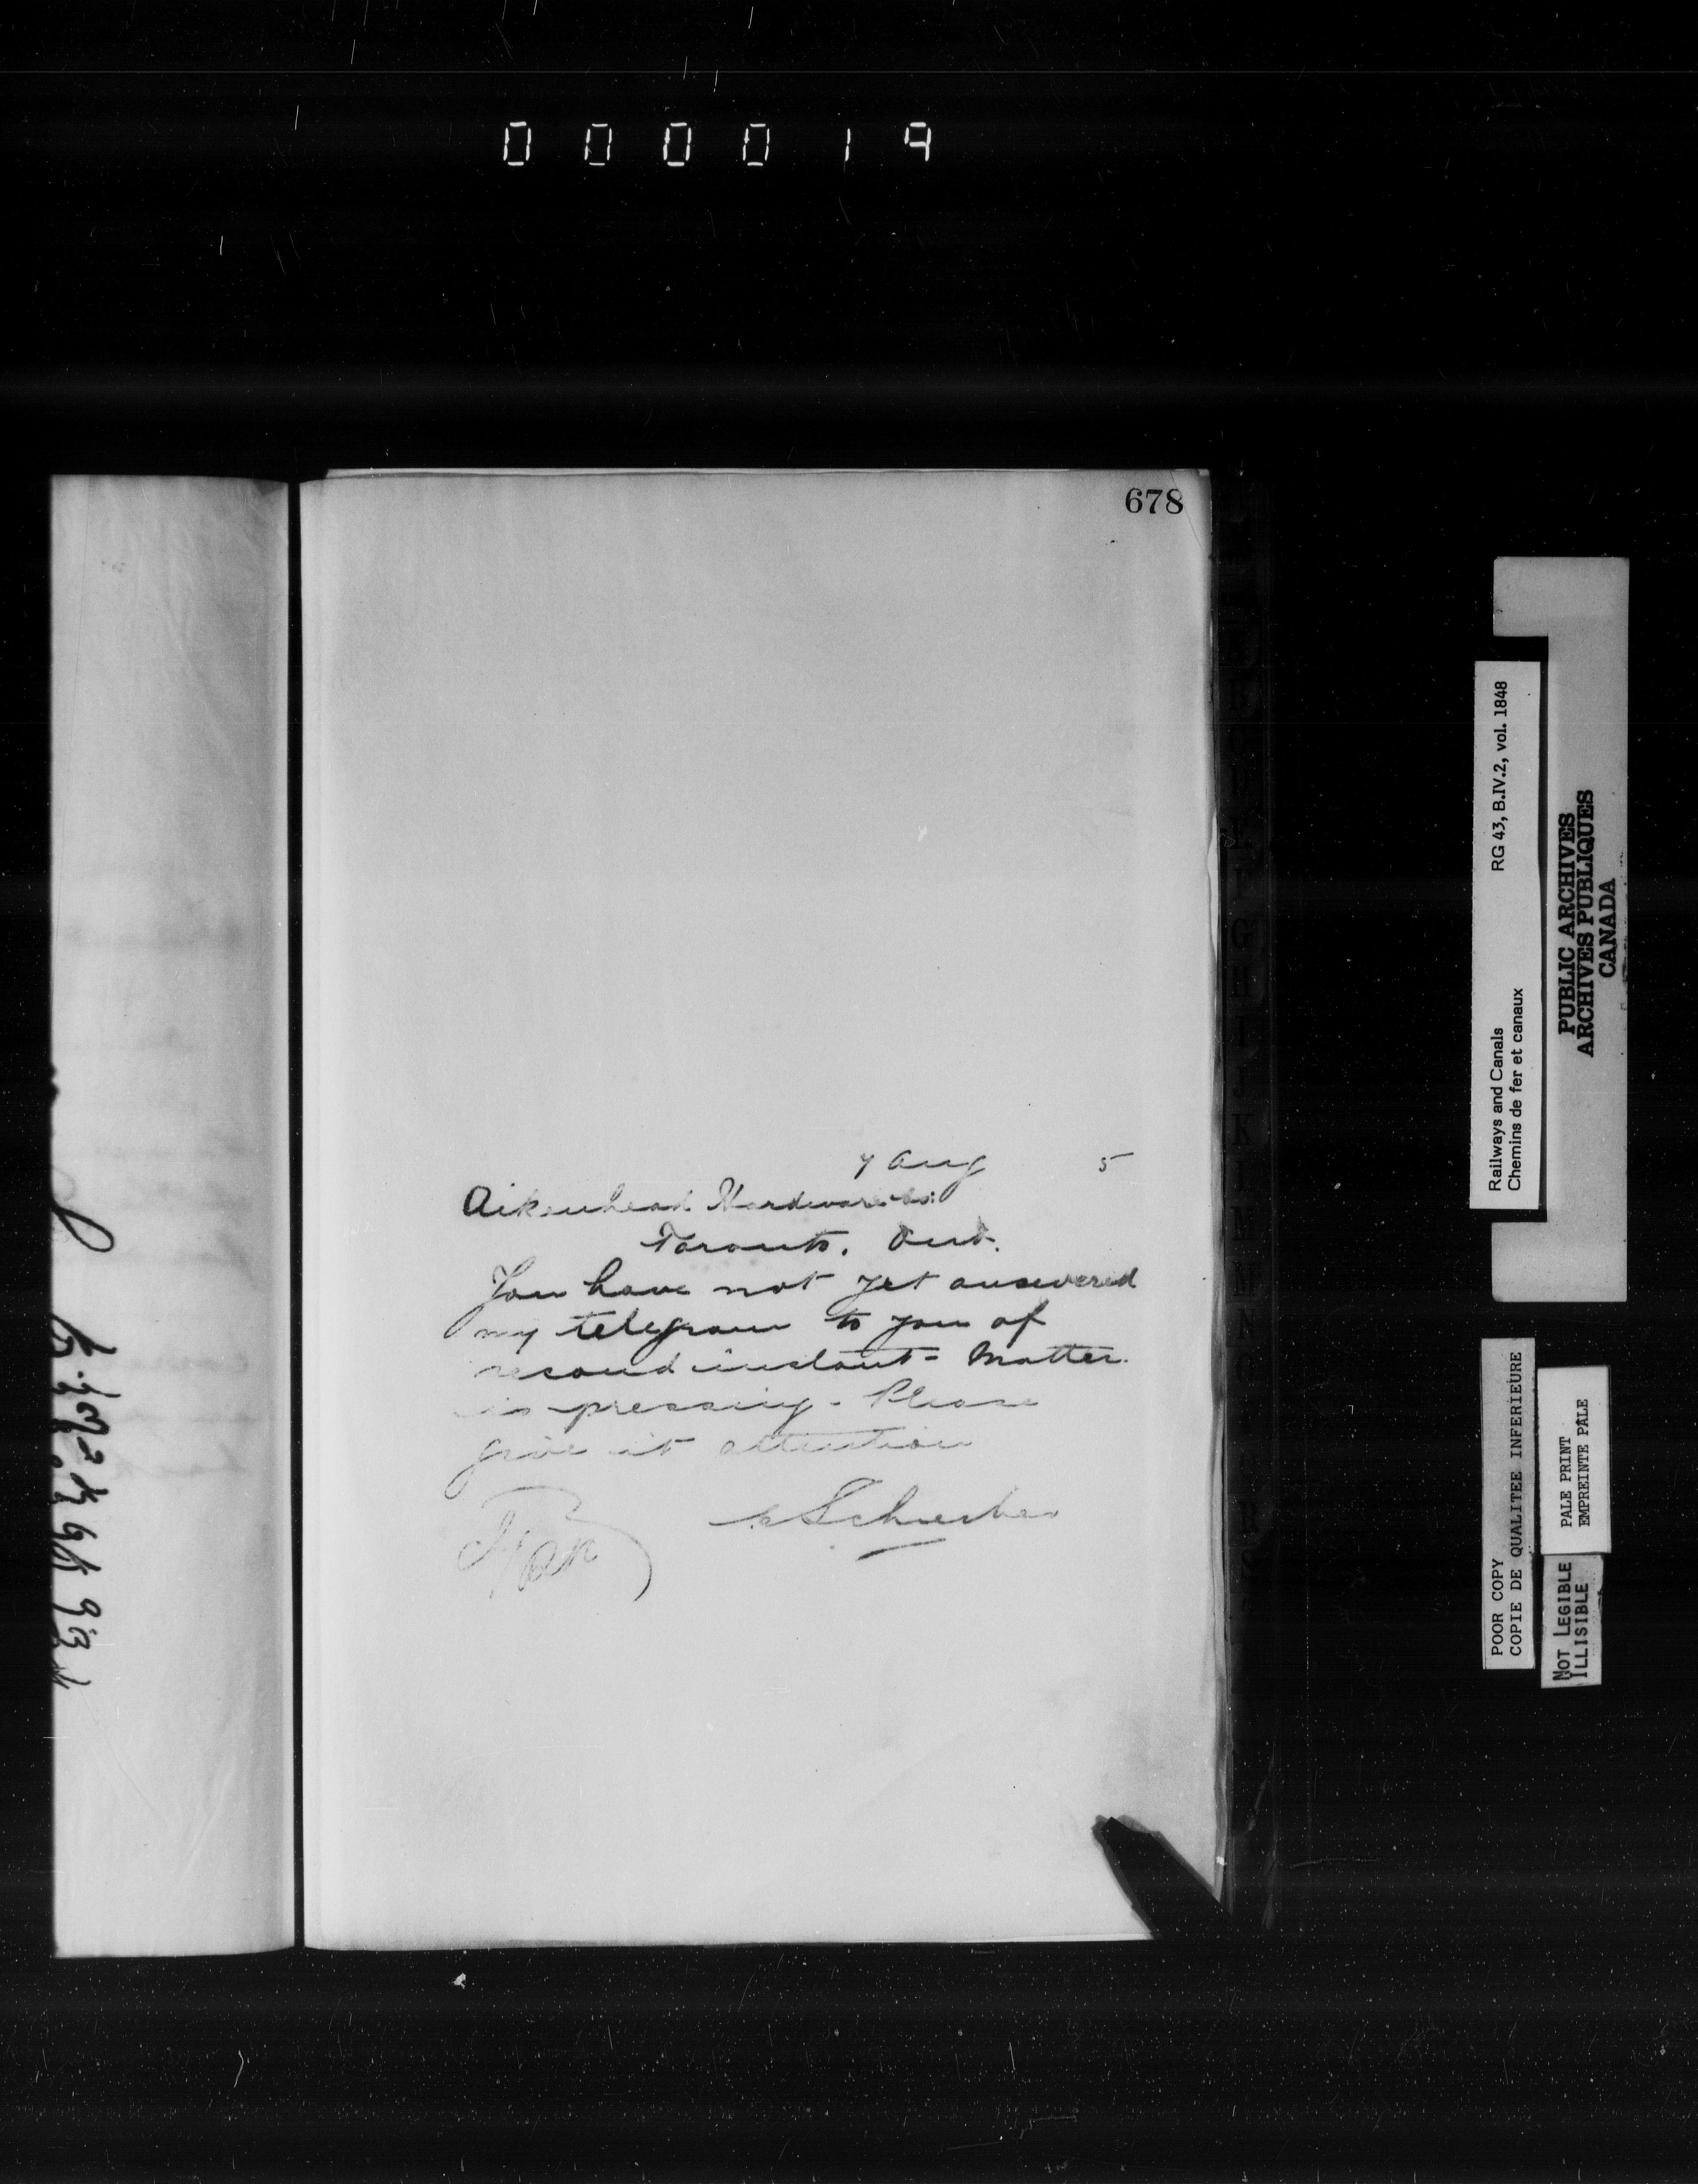 000019
678
7 Aug 5
Aikenhead Hardware Co:
Toronto, Ont.
You have not yet answered
my telegram to you of
second instant - Matter
is pressing - Please
give it attention
C Schreiber
Railways and Canals RG 43, B.IV.2, vol. 1848
Chemins de fer et canaux
PUBLIC ARCHIVES
ARCHIVES PUBLIQUES
CANADA
POOR COPY
COPIE DE QUALITEE INFERIEURE
PALE PRINT
EMPREINTE PÂLE
NOT LEGIBLE
ILLISIBLE